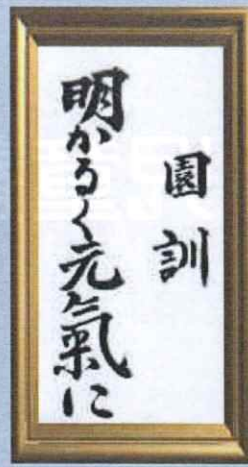 園訓
明かるく元氣に